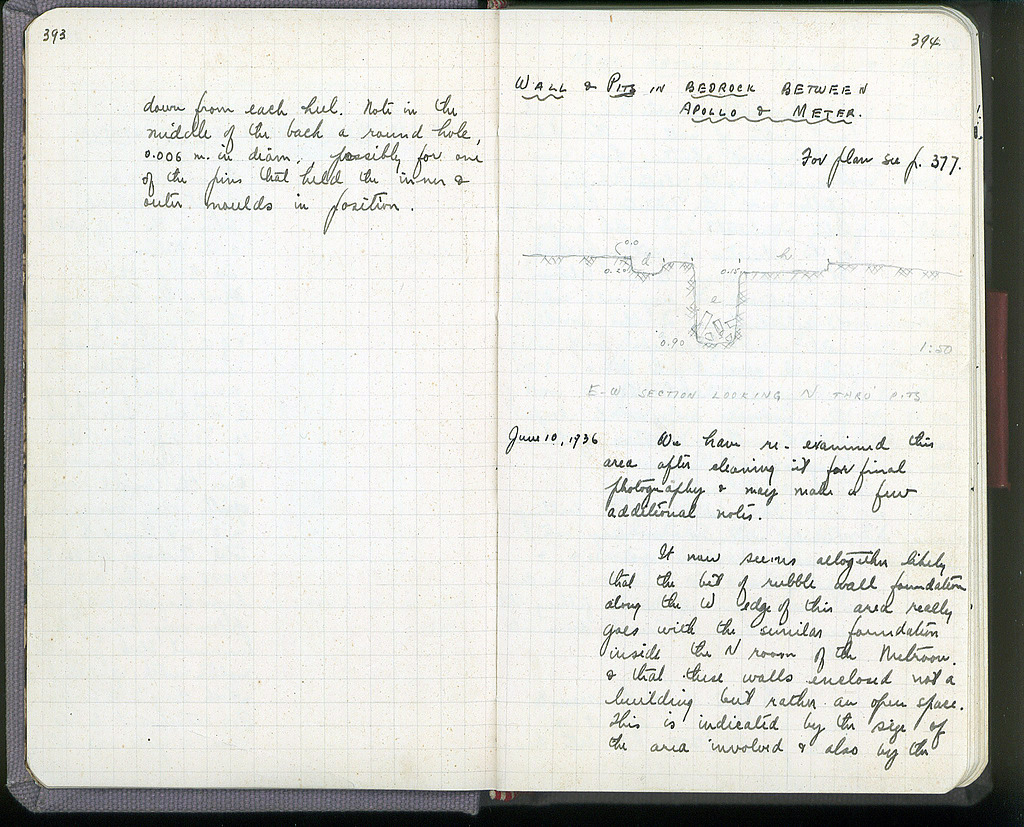 393
down from each heel. Note in the
middle of the back a round hole,
0.006 m. in diam., possibly for one
of the pins that held the inner &
outer moulds in position.
394
WALL & PITS IN BEDROCK BETWEEN
APOLLO & METER.
For plan see p. 377.
0.0
d
h
0.20
0.15
e
0.90
1:50
E-W SECTION LOOKING N THRU PITS
June 10, 1936
We have re-examined this
area after cleaning it for final
photography & may make a few
additional notes.
It now seems altogether likely
that the bit of rubble wall foundation
along the W edge of this area really
goes with the similar foundation
inside the N room of the Metroon.
& that these walls enclosed not a
building but rather an open space.
This is indicated by the size of
the area involved & also by the